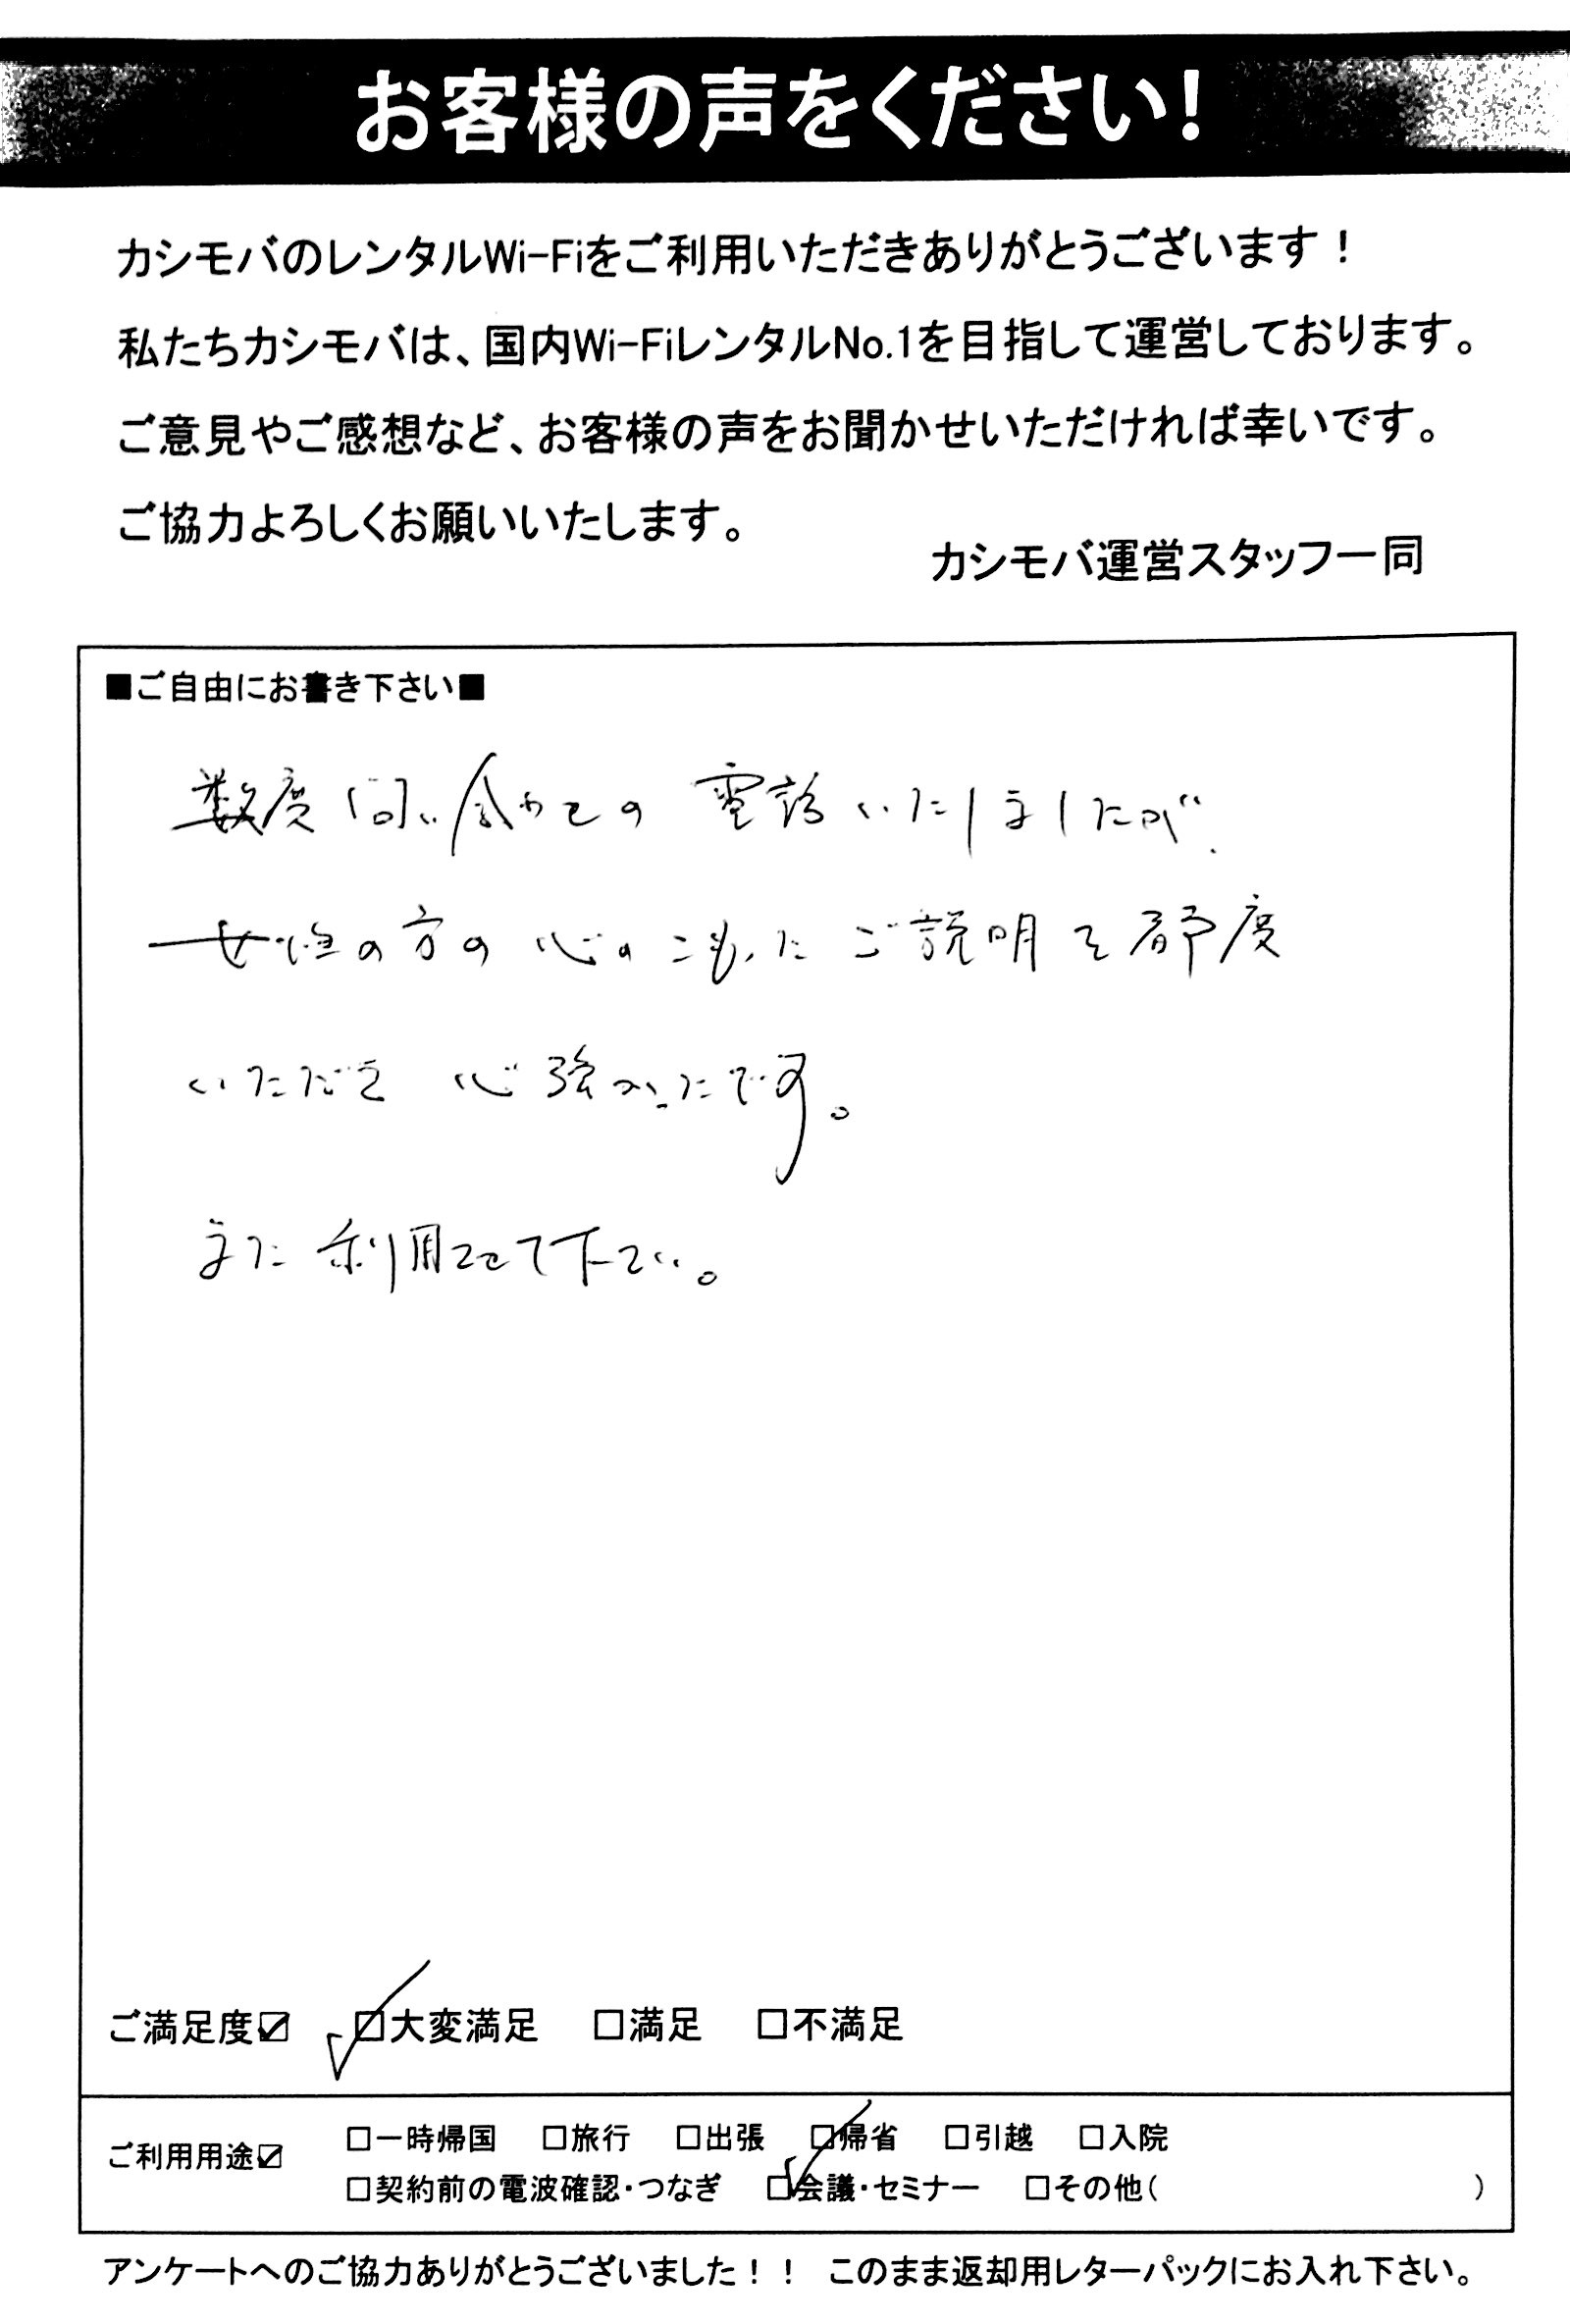 お客様の声をください!
カシモバのレンタルWi-Fiをご利用いただきありがとうございます!
私たちカシモバは、国内Wi-FiレンタルNo.1を目指して運営しております。
ご意見やご感想など、お客様の声をお聞かせいただければ幸いです。
ご協力よろしくお願いいたします。
カシモバ運営スタッフ一同
■ご自由にお書き下さい■
数度問い合わせの電話いたしましたが、
女性の方の心のこもったご説明を都度
いただき心強かったです。
また利用させて下さい。
ご満足度☑ ☑大変満足 □満足 □不満足
ご利用用途☑ □一時帰国 □旅行 □出張 ☑帰省 □引越 □入院
□契約前の電波確認・つなぎ □会議・セミナー □その他( )
アンケートへのご協力ありがとうございました!! このまま返却用レターパックにお入れ下さい。